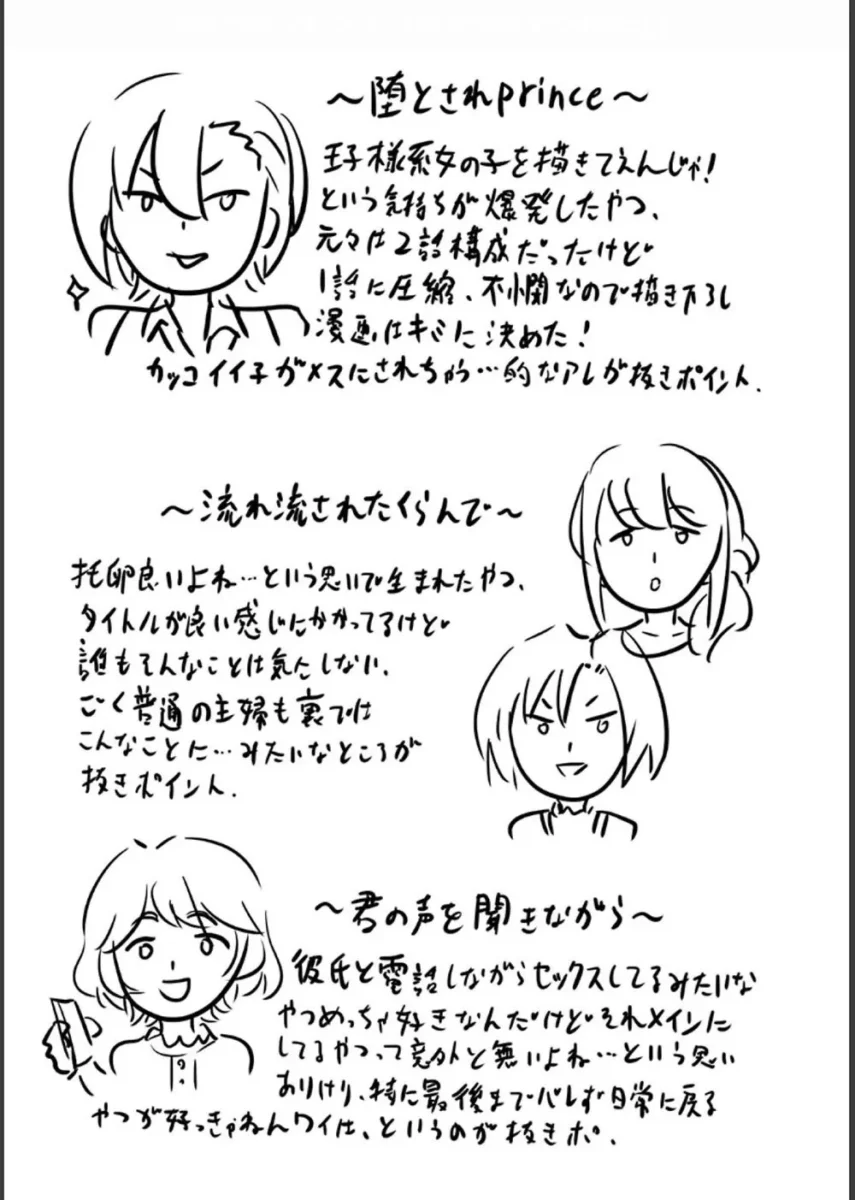 ～堕とされprince～
王子様系女の子を描きてえんじゃ!
という気持ちが爆発したやつ、
元々は2話構成だったけど
1話に圧縮、不憫なので描き下ろし
漫画はキミに決めた!
カッコイイ子がメスにされちゃう…的なアレが抜きポイント.
～流れ流されたくらんで～
托卵良いよね…という思いで生まれたやつ、
タイトルが良い感じにかかってるけど
誰もそんなことは気にしない.
ごく普通の主婦も裏では
こんなことに…みたいなところが
抜きポイント.
～君の声を聞きながら～
彼氏と電話しながらセックスしてるみたいな
やつめっちゃ好きなんだけどそれメインに
してるやつって意外と無いよね…という思い
ありけり、特に最後までバレず日常に戻る
やつが好っきゃねんワイは、というのが抜きポ.